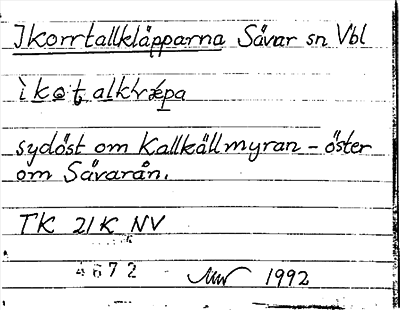 Ikorrtallkläpparna Sävar sn Vbl
sydöst om Kallkällmyran – öster
om Sävarån.
TK 21K NV
4672 1992